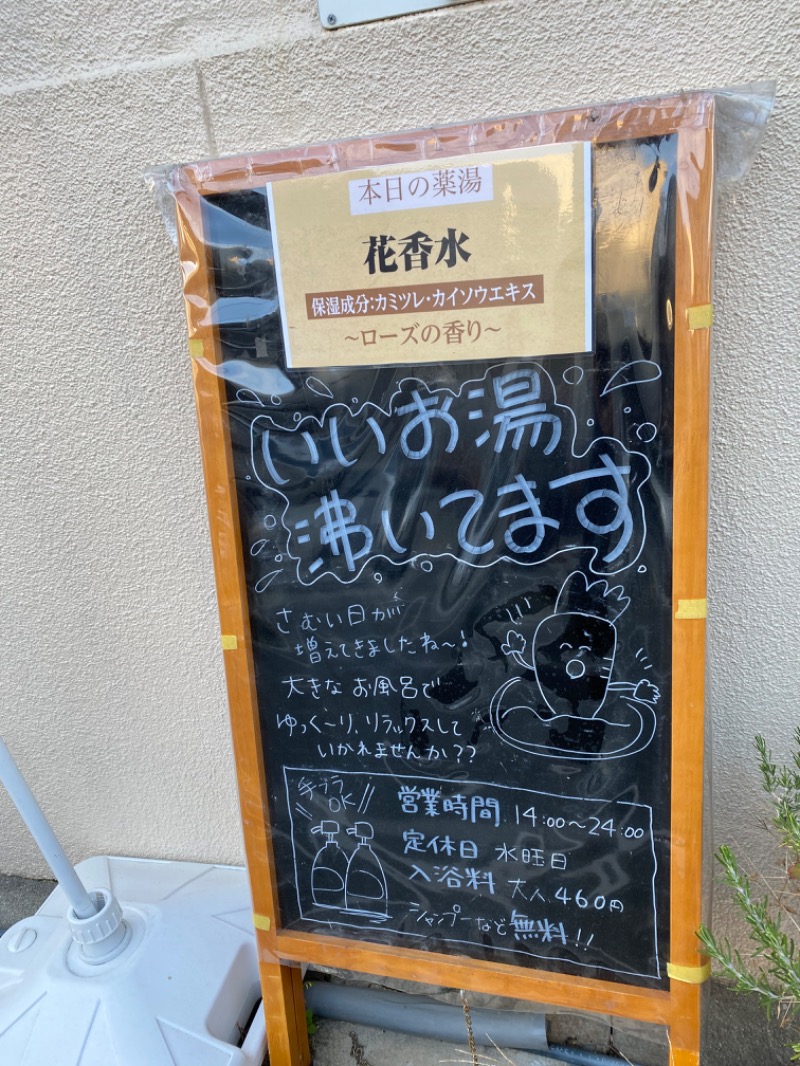 本日の薬湯
花香水
保湿成分:カミツレ・カイソウエキス
~ローズの香り~
いいお湯
沸いてます
さむい日が
増えてきましたね~!
大きなお風呂で
ゆっく~り、リラックスして
いかれませんか??
手ブラ
OK//
営業時間 14:00~24:00
定休日 水旺日
入浴料 大人460円
シャンプーなど無料!!